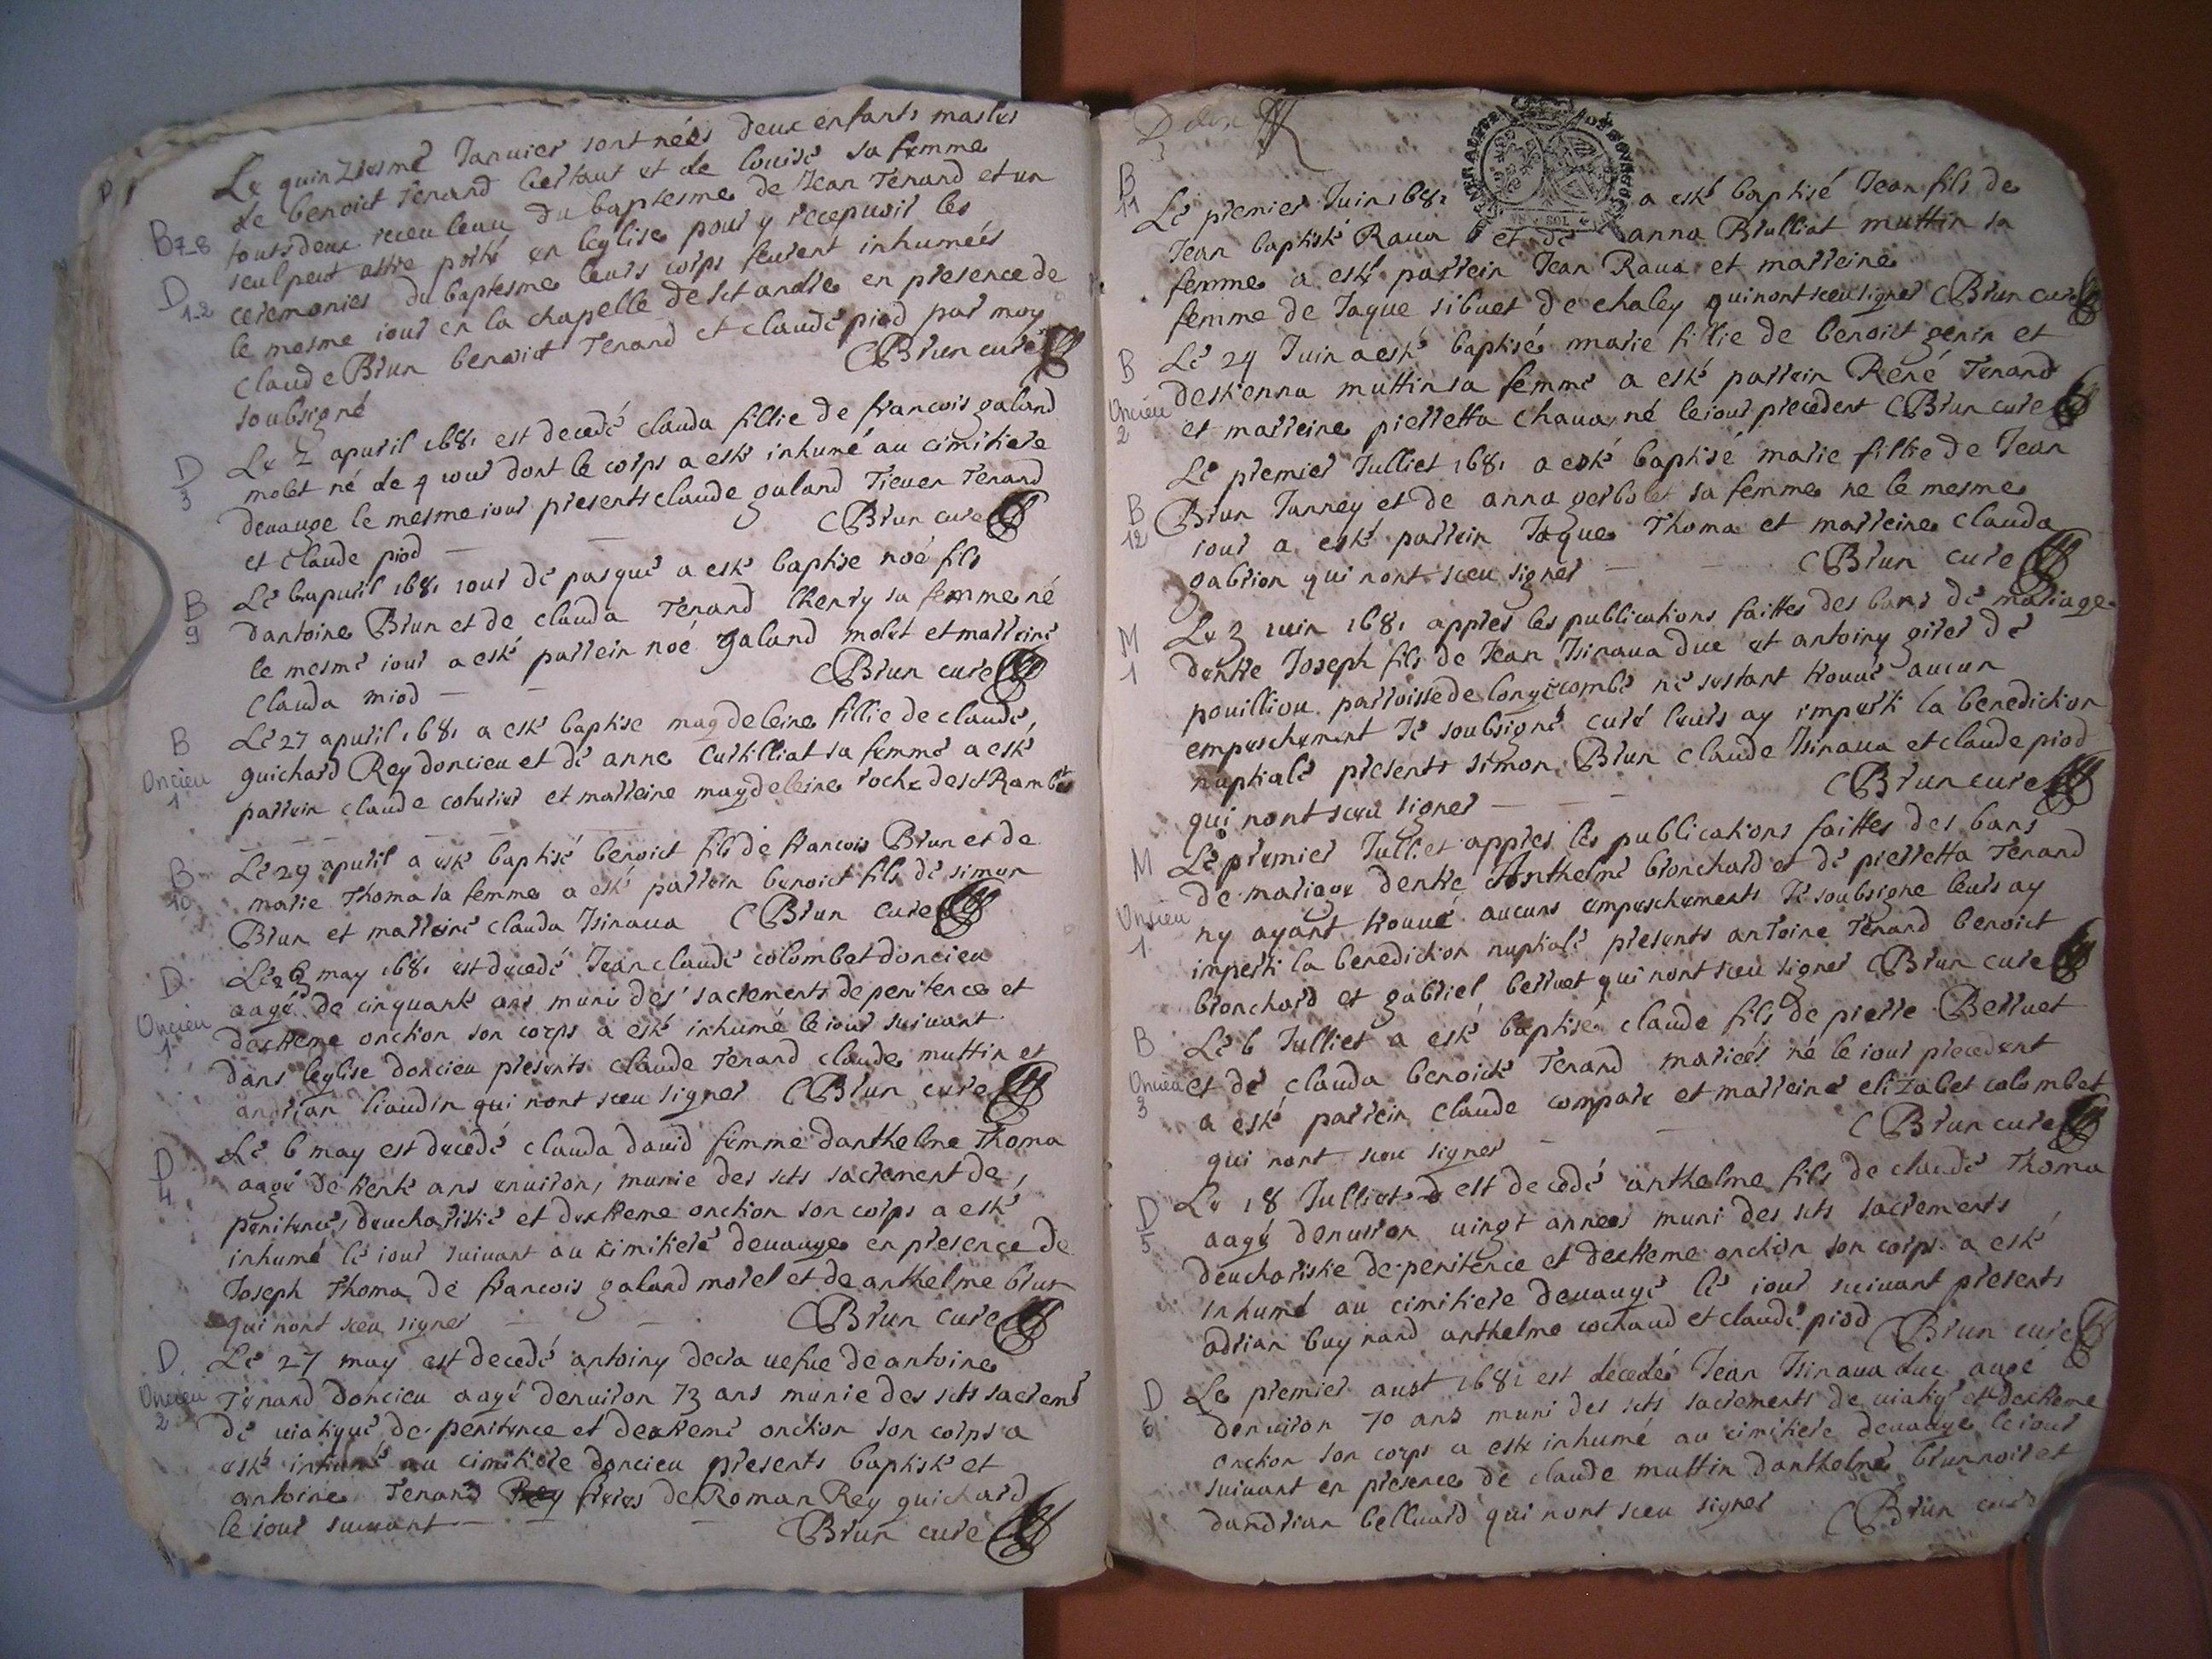 Le quinziesme Januier sont néés deux enfants masles
B 7-8
de benoict Tenard bertaut et de louise sa femme
touts deux receu leau du baptesme de Jean Tenard et un
seul peut estre porté en leglise pour y recepuoir les
D 1-2
ceremonies du baptesme leurs corps feurent inhumés
le mesme iour en la chapelle de sct andre en presence de
claude Brun benoict Tenard et claude piod par moy
soubsigné Brun cure
D 3
Le 2 apuril 1681 est decedé clauda fillie de francois galand
molet né de 4 iour dont le corps a esté inhumé au cimitiere
deuauge le mesme iour presents claude galand Tieuen Tenard
et claude piod Brun cure
B 9
Le 6 apuril 1681 iour de pasque a esté baptise noé fils
dantoine Brun et de clauda Tenard thenry sa femme né
le mesme iour a esté parrein noé galand molet et marreine
clauda miod Brun cure
B
Oncieu 1
Le 27 apuril 1681 a esté baptise magdeleine fillie de claude
guichard Rey doncieu et de anne Curtilliat sa femme a esté
parrein claude coturier et marreine magdeleine roche de sct Rambt
B 10
Le 29 apuril a esté baptisé benoict fils de francois Brun et de
marie Thoma sa femme a esté parrein benoict fils de simon
Brun et marreine clauda Tsinaua Brun cure
D
Oncieu 1
Le may 1681 est decedé Jean claude colombet doncieu
aagé de cinquante ans muni des sacrements de penitence et
dextreme onction son corps a esté inhumé le iour suiuant
dans leglise doncieu presents claude Tenard claude muttin et
andrian liaudin qui nont sceu signer Brun cure
D 4
Le 6 may est decedé clauda dauid femme danthelme Thoma
aagé de trente ans enuiron, munie des scts sacrement de
penitence, deucharistie et dextreme onction son corps a esté
inhumé le iour suiuant au cimitiere deuauge en presence de
Joseph Thoma de francois galand morel et de anthelme brun
qui nont sceu signer Brun cure
D
Oncieu 2
Le 27 may est decedé antoiny decra uefue de antoine
Tenard doncieu aagé denuiron 73 ans munie des scts sacremt
de uiatique de penitence et dextreme onction son corps a
esté inhumé au cimitiere doncieu presents baptiste et
antoine Tenard freres de Roman Rey guichard
le iour suiuant Brun cure
B 11
Le premier Juin 1681 a esté baptisé Jean fils de
Jean baptisté Raua et de anna Brulliat muttin sa
femme a esté parrein Jean Raua et marreine
femme de Jaque sibuet de chaley qui nont sceu signer Brun cure
B
Oncieu 2
Le 24 Juin a esté baptisé marie fillie de benoict genin et
destienna muttin sa femme a esté parrein René Tenard
et marreine pierretta chaua, né le iour precedent Brun cure
B 12
Le premier Julliet 1681 a esté baptisé marie fillie de Jean
Brun Janney et de anna gerbolet sa femme ne le mesme
iour a esté parrein Jaque Thoma et marreine clauda
gabrion qui nont sceu signer Brun cure
M 1
Le 3 iuin 1681 appres les publications faittes des bans de mariage
dentre Joseph fils de Jean Tsinaua duc et antoiny giret de
pouilliou parroisse de longecombe ne sestant trouué aucun
empeschement Je soubsigné curé leurs ay imperti la benediction
nuptiale presents simon Brun claude Tsinaua et claude piod
qui nont sceu signer Brun cure
M
Oncieu 1
Le premier Julliet appres les publications faittes des bans
de mariage dentre Anthelme bronchard et de pierretta Tenard
ny ayant trouué aucuns empeschements Je soubsigne leurs ay
imperti la benediction nuptiale presents antoine Tenard benoict
bronchard et gabriel berruet qui nont sceu signer Brun cure
B
Oncieu 3
Le 6 Julliet a esté baptisé claude fils de pierre Berruet
et de clauda benoicte Tenard mariées né le iour precedent
a esté parrein claude compare et marreine elizabet colombet
qui nont sceu signer Brun cure
D 5
Le 18 Julliet est decedé anthelme fils de claude Thoma
aagé denuiron uingt annees muni des scts sacrements
deucharistie de penitence et dextreme onction son corps a esté
inhumé au cimitiere deuauge le iour suiuant presents
adrian buynand anthelme cochaud et claude piod Brun cure
D 6
Le premier aust 1681 est decedé Jean Tsinaua duc aagé
denuiron 70 ans muni des scts sacrements de uiatiq et dextreme
onction son corps a este inhumé au cimitiere deuauge le iour
suiuant en presence de claude muttin danthelme brunnoir et
dandrian belluard qui nont sceu signer Brun cure